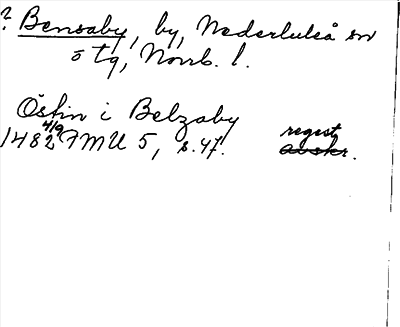 ? Bensaby, by, Nederluleå sn
ö tg, Norrb. l.
Östin i Belzaby
1482 4/9 FMU 5, s. 47. regest
avskr.